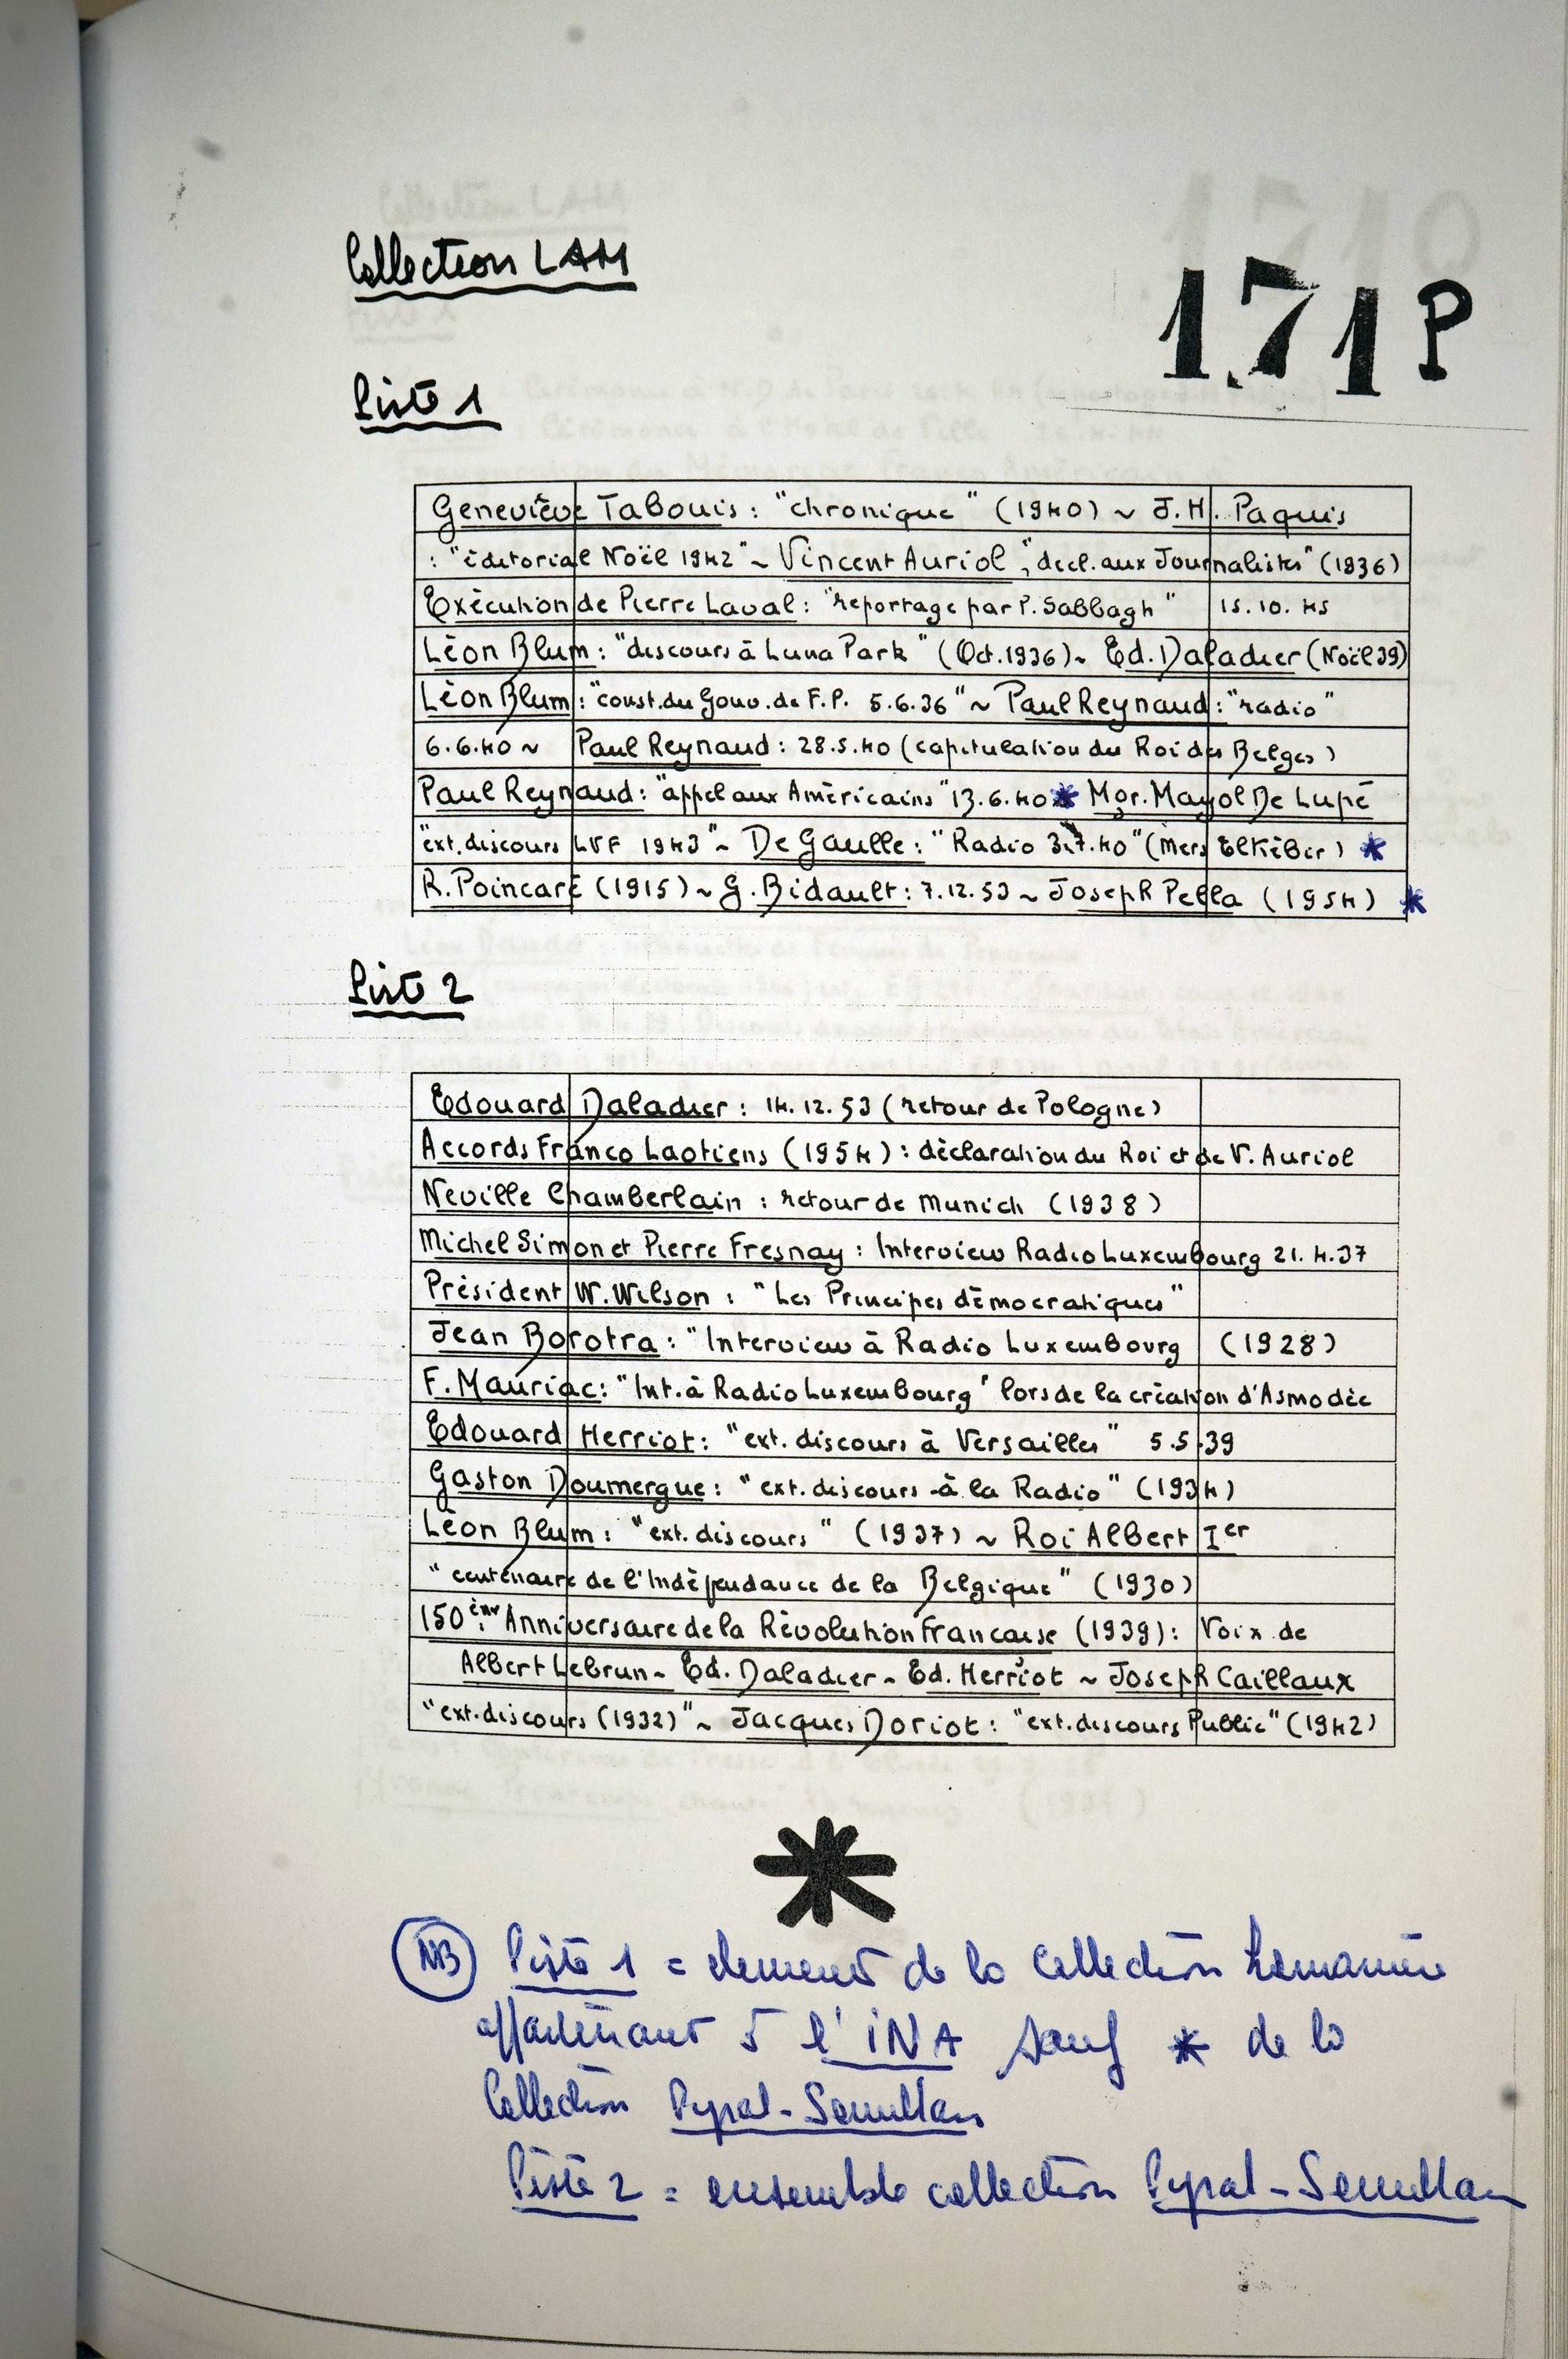 Collection LAM
171P
Piste 1
Geneviève Tabouis : "chronique" (1940) ~ J.H. Paquis
: "éditorial Noël 1942" ~ Vincent Auriol "décl. aux Journalistes" (1936)
Exécution de Pierre Laval : "reportage par P. Sabbagh" 15.10.45
Léon Blum : "discours à Luna Park" (Oct. 1936) ~ Ed. Daladier (Noël 39)
Léon Blum : "const. du Gouv. de F.P. 5.6.36" ~ Paul Reynaud : "radio"
6.6.40 ~ Paul Reynaud : 28.5.40 (capitulation du Roi des Belges)
Paul Reynaud : "appel aux Américains" 13.6.40 * Mgr. Mayol De Lupé
"ext. discours LVF 1943" ~ De Gaulle : "Radio 3.7.40" (Mers El Kébir) *
R. Poincaré (1915) ~ G. Bidault : 7.12.53 ~ Joseph Pella (1954) *
Piste 2
Edouard Daladier : 14.12.53 (retour de Pologne)
Accords Franco Laotiens (1954) : déclaration du Roi et de V. Auriol
Neville Chamberlain : retour de Munich (1938)
Michel Simon et Pierre Fresnay : Interview Radio Luxembourg 21.4.37
Président W. Wilson : "Les Principes démocratiques"
Jean Borotra : "Interview à Radio Luxembourg (1928)
F. Mauriac : "Int. à Radio Luxembourg" lors de la création d'Asmodée
Edouard Herriot : "ext. discours à Versailles" 5.5.39
Gaston Doumergue : "ext. discours à la Radio" (1934)
Léon Blum : "ext. discours" (1937) ~ Roi Albert Ier
"centenaire de l'Indépendance de la Belgique" (1930)
150ème Anniversaire de la Révolution Francaise (1939) : Voix de
Albert Lebrun ~ Ed. Daladier ~ Ed. Herriot ~ Joseph Caillaux
"ext. discours (1932)" ~ Jacques Doriot : "ext. discours Public" (1942)
*
NB Piste 1 = element de la Collection
appartenant à l'INA sauf * de la
Collection Pyral-Semullan
Piste 2 = ensemble collection Pyral-Semullan